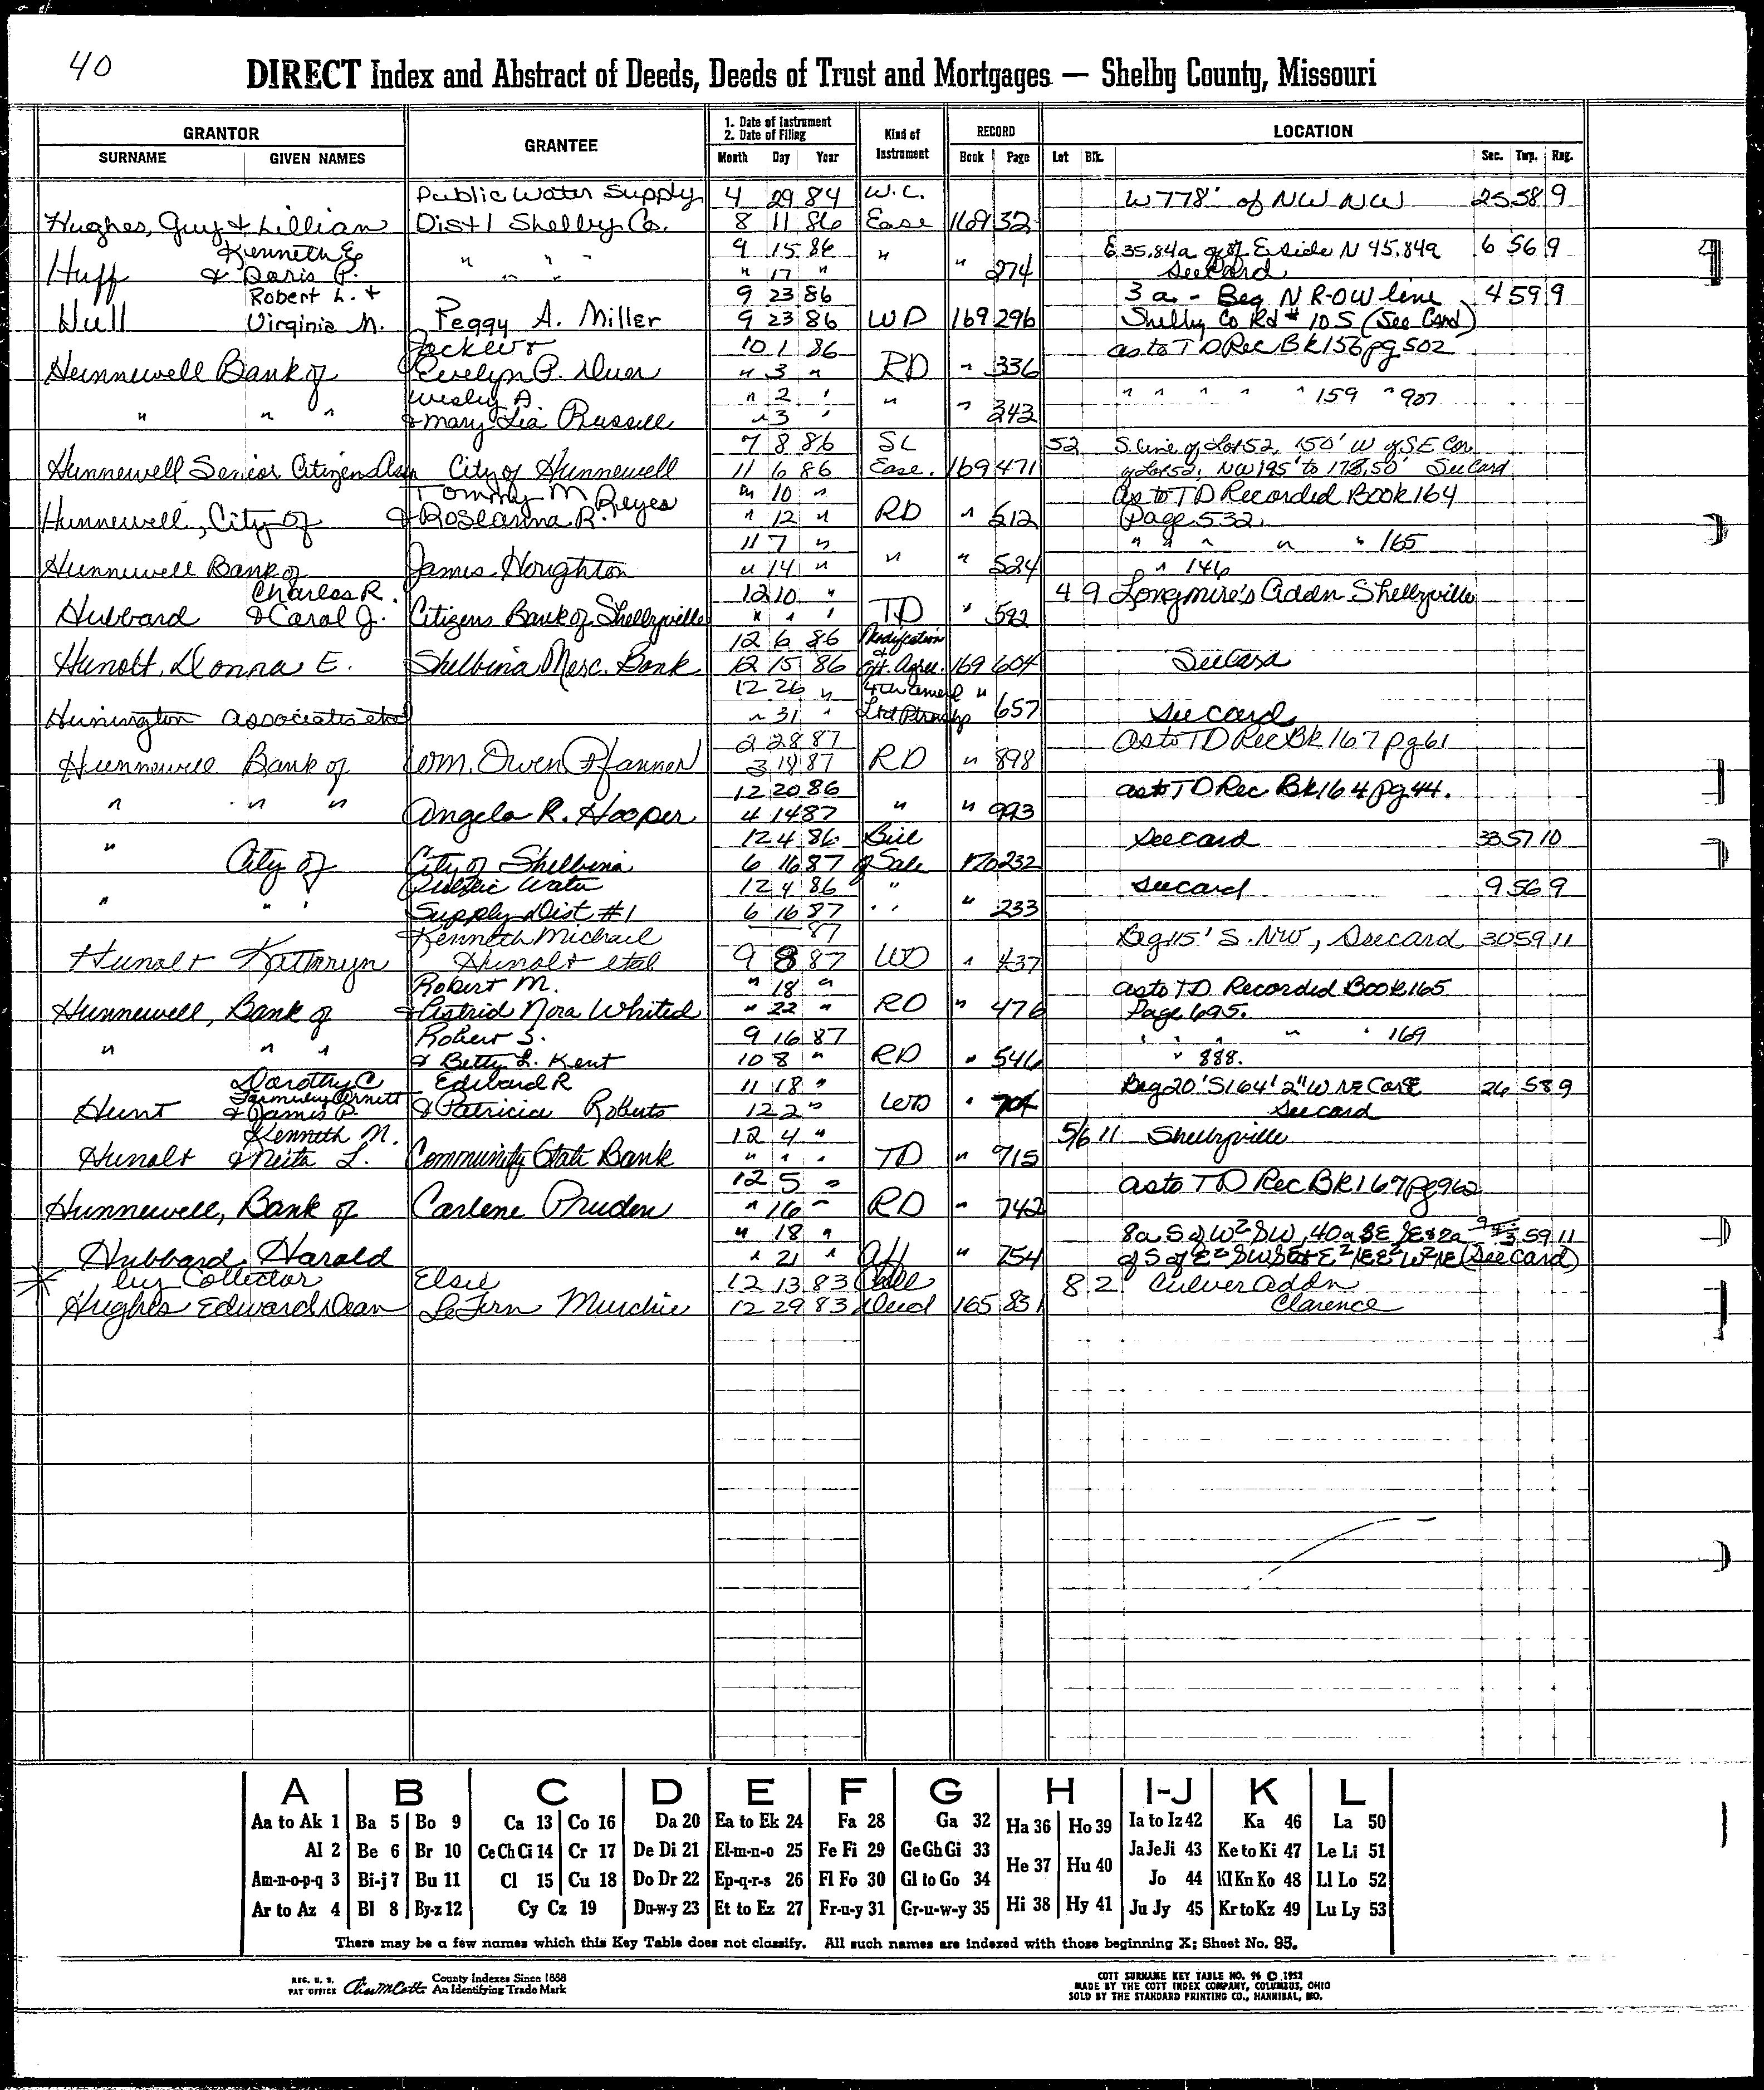 40
DIRECT Index and Abstract of Deeds, Deeds of Trust and Mortgages — Shelby County, Missouri
GRANTOR GRANTEE 1. Date of Instrument 2. Date of Filing Kind of Instrument RECORD LOCATION
SURNAME GIVEN NAMES Month Day Year Book Page Lot Blk. Sec. Twp. Rng.
Public Water Supply 4 29 84 W.C. W 778' of NW NW 25 58 9
Hughes, Guy & Lillian Dist 1 Shelby Co. 8 11 86 Ease 169 32
Kenneth E 9 15 86 " E 35.84a of E side N 45.84a 6 56 9
Huff & Doris P. " " " " 17 " " 274 See Card
Robert L. & 9 23 86 3 a - Beg N R-OW line 4 59 9
Hull Virginia N. Peggy A. Miller 9 23 86 WD 169 296 Shelby Co Rd # 105 (See Card)
10 1 86 as to TD Rec Bk 156 pg 502
Hunnewell Bank of Evelyn P. " 3 " RD " 336
Wesley A. " 2 " " " " " " " 159 " 907
" " " & Mary Lia Russell " 3 " " 343
7 8 86 SL 52 S. line of Lot 52, 150' W of SE Cor
Hunnewell Senior Citizen Assn City of Hunnewell 11 6 86 Ease. 169 471 of Lot 52, NW 195' to 178.50' See Card
Tommy M Reyes " 10 " As to TD Recorded Book 164
Hunnewell, City of & Roseanna R. " 12 " RD " 512 Page 532.
11 7 " " " " " " 165
Hunnewell Bank of James Houghton " 14 " " " 524 " 146
Charles R. 12 10 " 4 9 Longmire's Addn Shelbyville
Hubbard & Carol J. Citizens Bank of Shelbyville " " " TD " 592
12 6 86 Modification
Hunolt, Donna E. Shelbina Merc. Bank 12 15 86 & Ext. Agree. 169 604 See Card
12 26 " 4th Amend "
Hunington Associates etal " 31 " Ltd Ptrnshp 657 See card
2 28 87 As to TD Rec Bk 167 pg 61
Hunnewell Bank of Wm. Owen Pfanner 3 19 87 RD " 898
12 20 86 as to TD Rec Bk 164 pg 44.
" " " Angela R. Hooper 4 14 87 " " 993
12 4 86 Bill See card 33 57 10
" City of City of Shelbina 6 16 87 of Sale 170 232
Public Water 12 4 86 " See card 9 56 9
" " " Supply Dist #1 6 16 87 " " " 233
Kenneth Michael 87 Beg 115' S. NW, See card 30 59 11
Hunolt Kathryn Hunolt etal 9 8 87 WD " 437
Robert M. " 18 " as to TD Recorded Book 165
Hunnewell, Bank of & Astrid Nora Whited " 22 " RD " 476 Page 695.
Robert S. 9 16 87 " " " " 169
" " " & Betty L. Kent 10 8 " RD " 546 " 888.
Dorothy C Edward R 11 18 " Beg 20' S 164' 2" W NE Cor E 26 58 9
Formerly Arnett
Hunt & James P. & Patricia Roberts 12 2 " WD " 704 See card
Kenneth N. 12 4 " 5/6 11 Shelbyville
Hunolt & Neita L. Community State Bank " " " TD " 715
12 5 " as to TD Rec Bk 167 pg 962
Hunnewell, Bank of Carlene Pruden " 16 " RD " 742
" 18 " 8a S of W2 SW, 40a SE 59 11
Hubbard, Harold " 21 " Aff " 754 (See Card)
by Collector Elsie 12 13 83 Coll 8 2 Culver Addn
Hughes Edward Dean LeFern Murchie 12 29 83 Deed 165 831 Clarence
A B C D E F G H I-J K L
Aa to Ak 1 Ba 5 Bo 9 Ca 13 Co 16 Da 20 Ea to Ek 24 Fa 28 Ga 32 Ha 36 Ho 39 Ia to Iz 42 Ka 46 La 50
Al 2 Be 6 Br 10 Ce Ch Ci 14 Cr 17 De Di 21 El-m-n-o 25 Fe Fi 29 Ge Gh Gi 33 He 37 Hu 40 Ja Je Ji 43 Ke to Ki 47 Le Li 51
Am-n-o-p-q 3 Bi-j 7 Bu 11 Cl 15 Cu 18 Do Dr 22 Ep-q-r-s 26 Fl Fo 30 Gl to Go 34 Jo 44 Kl Kn Ko 48 Ll Lo 52
Ar to Az 4 Bl 8 By-z 12 Cy Cz 19 Du-w-y 23 Et to Ez 27 Fr-u-y 31 Gr-u-w-y 35 Hi 38 Hy 41 Ju Jy 45 Kr to Kz 49 Lu Ly 53
There may be a few names which this Key Table does not classify. All such names are indexed with those beginning X; Sheet No. 95.
REG. U. S. PAT OFFICE County Indexes Since 1888 An Identifying Trade Mark
COTT SURNAME KEY TABLE NO. 96 © 1952
MADE BY THE COTT INDEX COMPANY, COLUMBUS, OHIO
SOLD BY THE STANDARD PRINTING CO., HANNIBAL, MO.